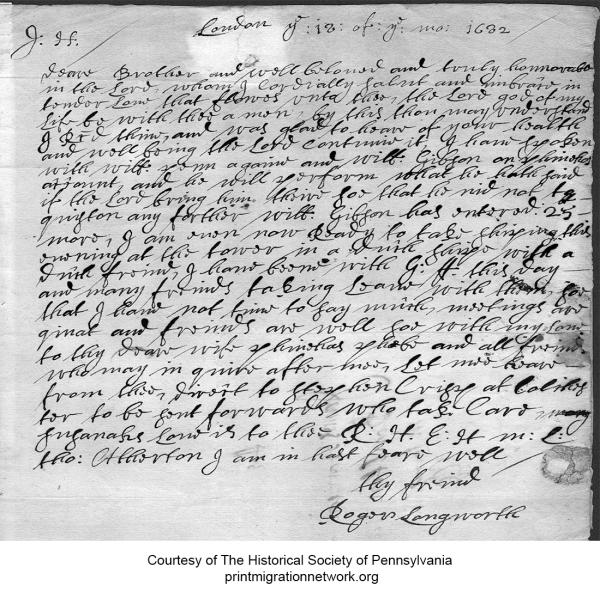 London yᵉ: 18: of: yᵉ: mo: 1682
J: H:
deare Brother and well beloved and truly honnorable
in the Lord, whom I Cordially salut and imbrace in
tender Love that flowes unto thee, the Lord god of my
Life be with thee amen, by this thou may understand
I Rcd thine, and was glad to heare of your health
and well being the Lord Continue it, I have spoken
with will: penn againe and will: Gibson on phinehas
account, and he will perform what he hath said
if the Lord bring him theire soe that he nid not to
quistion any forther will: Gibson has entered: 25
more, I am even now Ready to take shiping this
evening at the tower in a dutch shipe with a
dutch freind, I have beene with G: ff this day
and many freinds taking Leave with them, soe
that I have not time to say much, meetings are
and freinds are well soe with my Love
to thy deare wife phinehas phebe and all freinds
who may in quire after mee, Let mee heare
from thee, direct to stephen Crisp at Colches
ter to be sent forwards who take Care
susanahs Love is to thee R: H, E: H m: L:
tho: Atherton I am in hast feare well
thy freind
Roger Longworth
Courtesy of The Historical Society of Pennsylvania
printmigrationnetwork.org